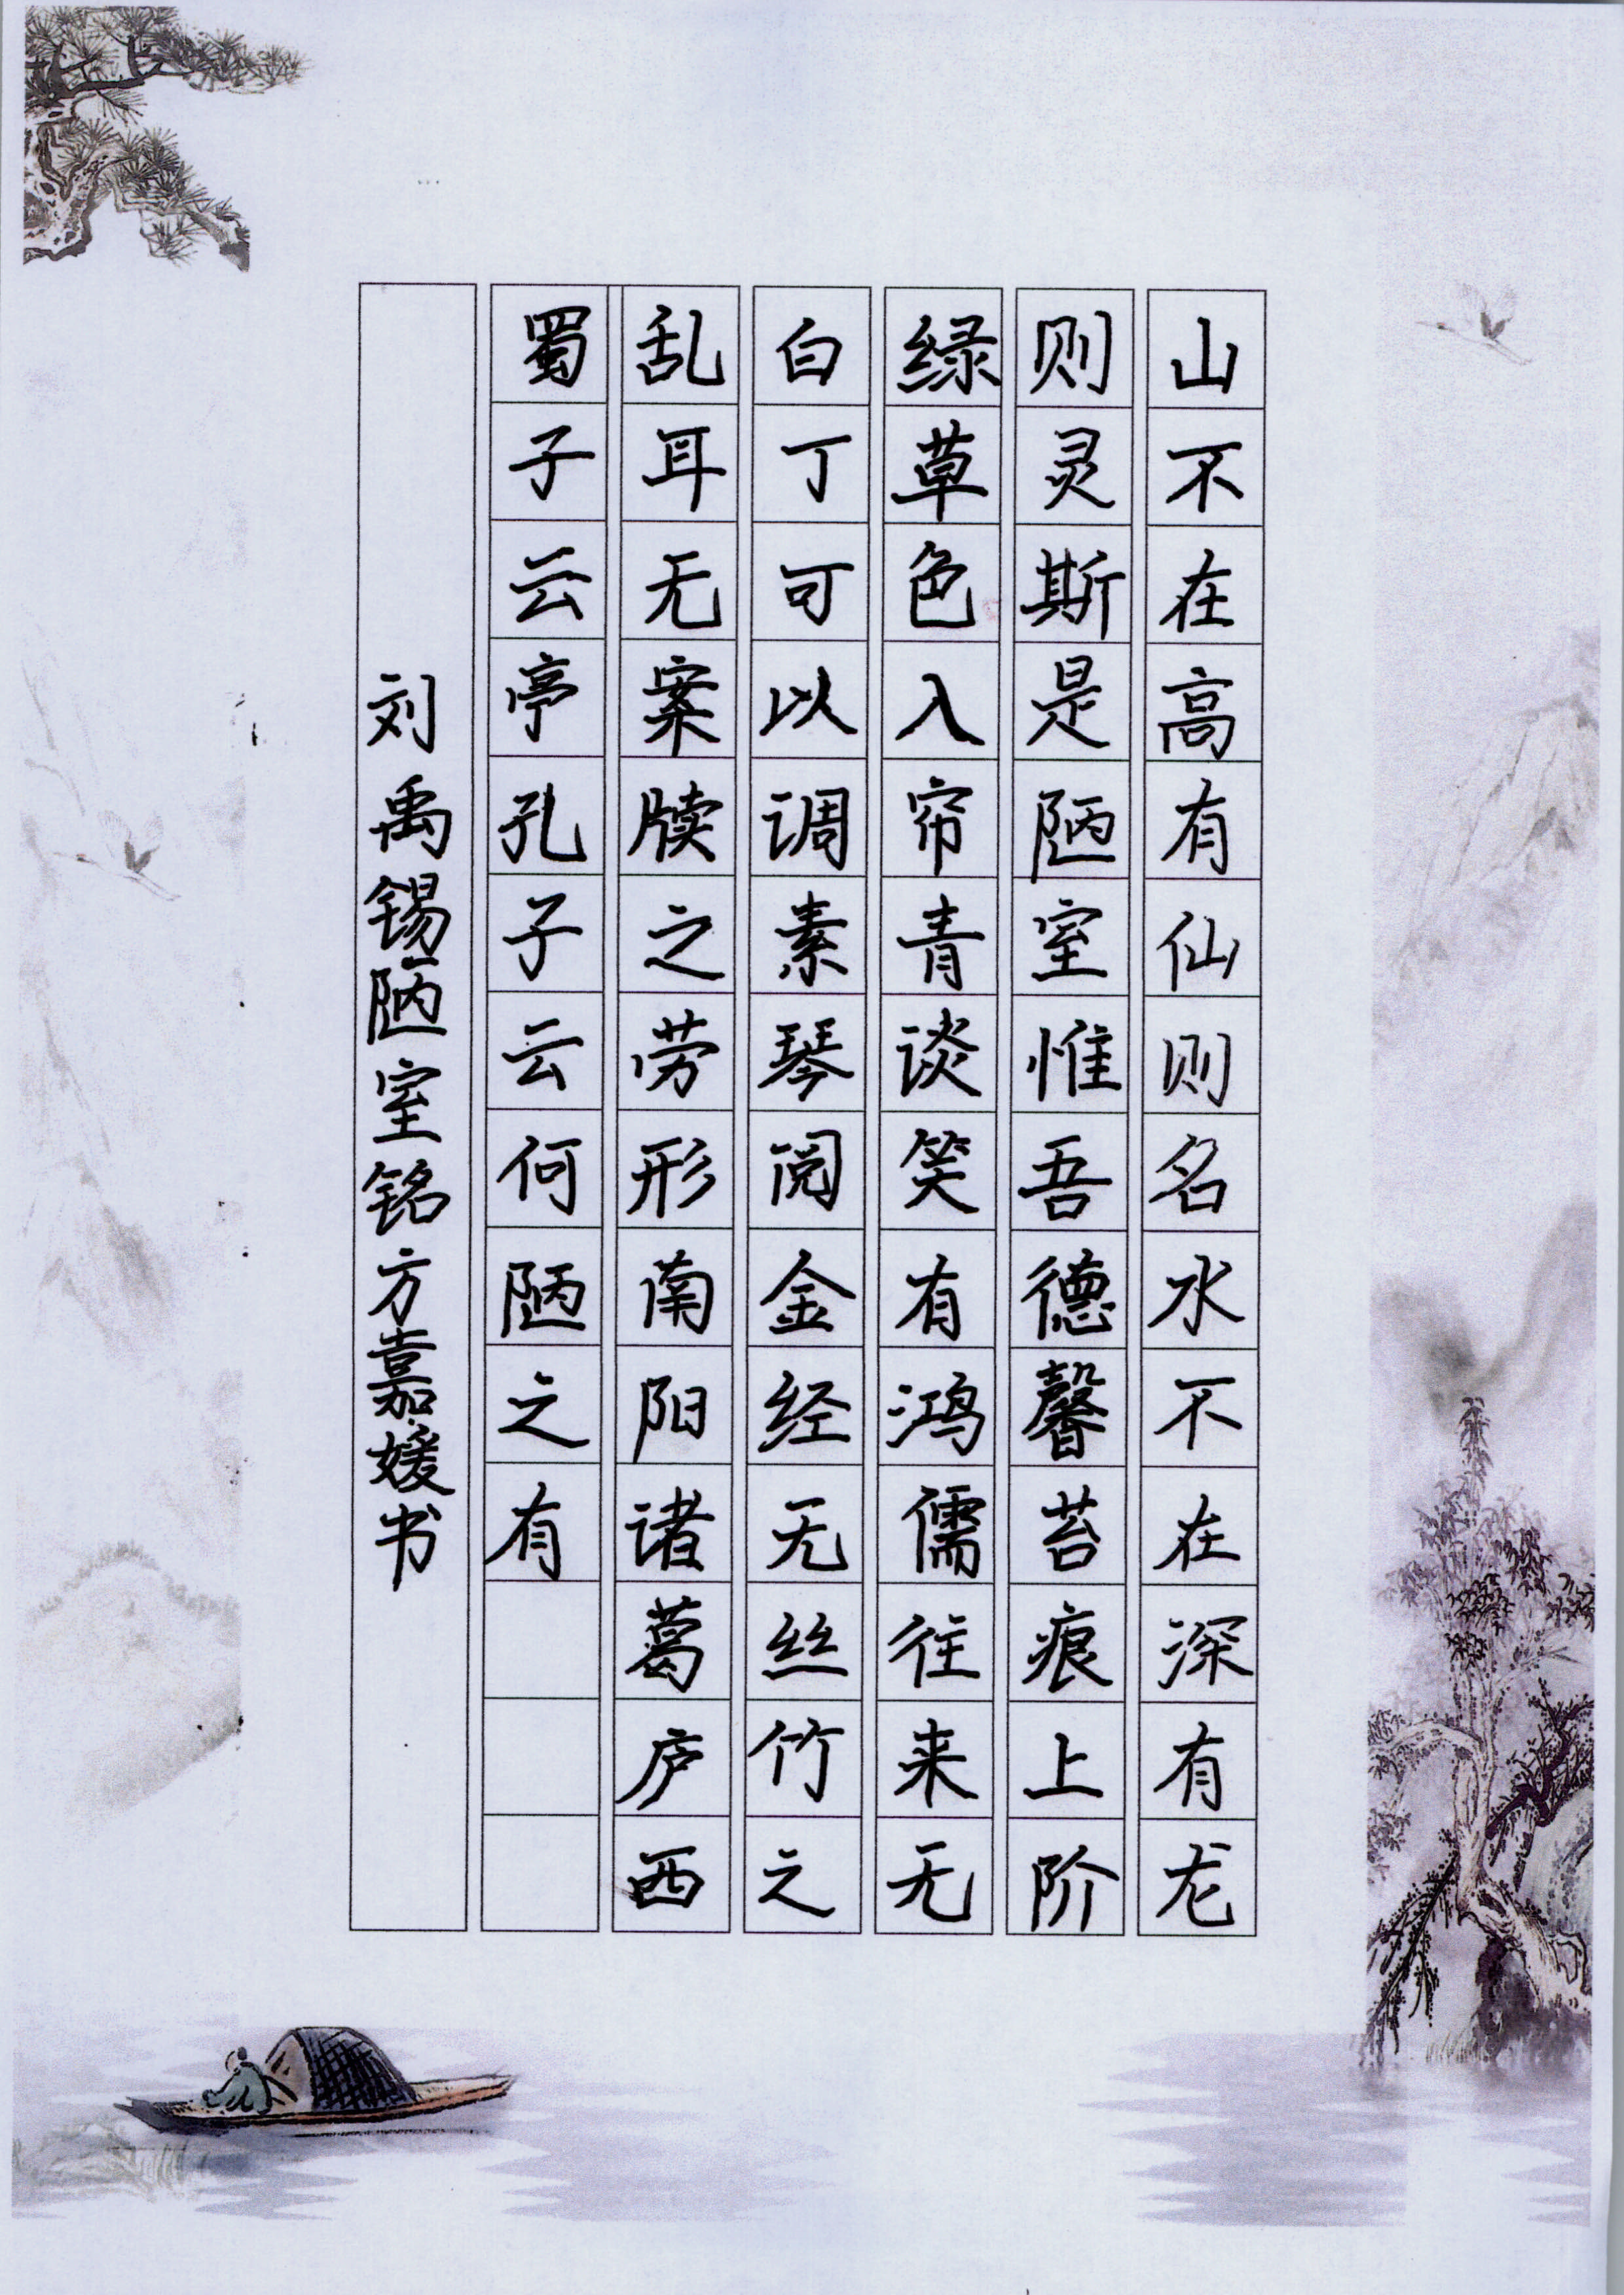 山不在高有仙则名水不在深有龙
则灵斯是陋室惟吾德馨苔痕上阶
绿草色入帘青谈笑有鸿儒往来无
白丁可以调素琴阅金经无丝竹之
乱耳无案牍之劳形南阳诸葛庐西
蜀子云亭孔子云何陋之有
刘禹锡陋室铭方嘉媛书